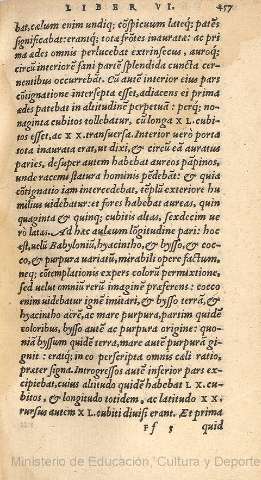 LIBER VI. 457
bat, cælum enim undiq; cõspicuum lateq; patẽs
significabat: erantq; tota frõtes inaurata: ac pri
ma ædes omnis perlucebat extrinsecus, auroq;
circũ interiorẽ fani partẽ splendida cuncta cer-
nentibus occurrebat. Cũ autẽ interior eius pars
cõtignatione intersepta esset, adiacens ei prima
ædes patebat in altitudinẽ perpetuã: perq; no-
naginta cubitos tollebatur, cũ longa X L. cubi-
tos esset, ac X X. trãsuersa. Interior uerò porta
tota inaurata erat, ut dixi, & circũ eã auratus
paries, desuper autem habebat aureos pãpinos,
unde racemi statura hominis pẽdebãt: & quia
cõtignatio iam intercedebat, tẽplũ exteriore hu
milius uidebatur: et fores habebat aureas, quin
quaginta & quinq; cubitis altas, sexdecim ue
rò latas. Ad hæc aulæum lõgitudine pari: hoc
est, uelũ Babyloniũ, hyacintho, & bysso, & coc-
co, & purpura uariatũ, mirabili opere factum,
neq; cõtemplationis expers colorũ permixtione,
sed uelut omniũ rerũ imaginẽ præferens: cocco
enim uidebatur ignẽ imitari, & bysso terrã, &
hyacintho aërẽ, ac mare purpura, partim quidẽ
coloribus, bysso autẽ ac purpura origine: quo-
niã byssum quidẽ terra, mare autẽ purpurã gi-
gnit: eratq; in eo perscripta omnis cæli ratio,
præter signa. Introgressos autẽ inferior pars ex-
cipiebat, cuius altitudo quidẽ habebat L X. cu-
bitos, & longitudo totidem, ac latitudo X X.
rursus autem X L. cubiti diuisi erant. Et prima
Ff 5 quid
Ministerio de Educación, Cultura y Deporte